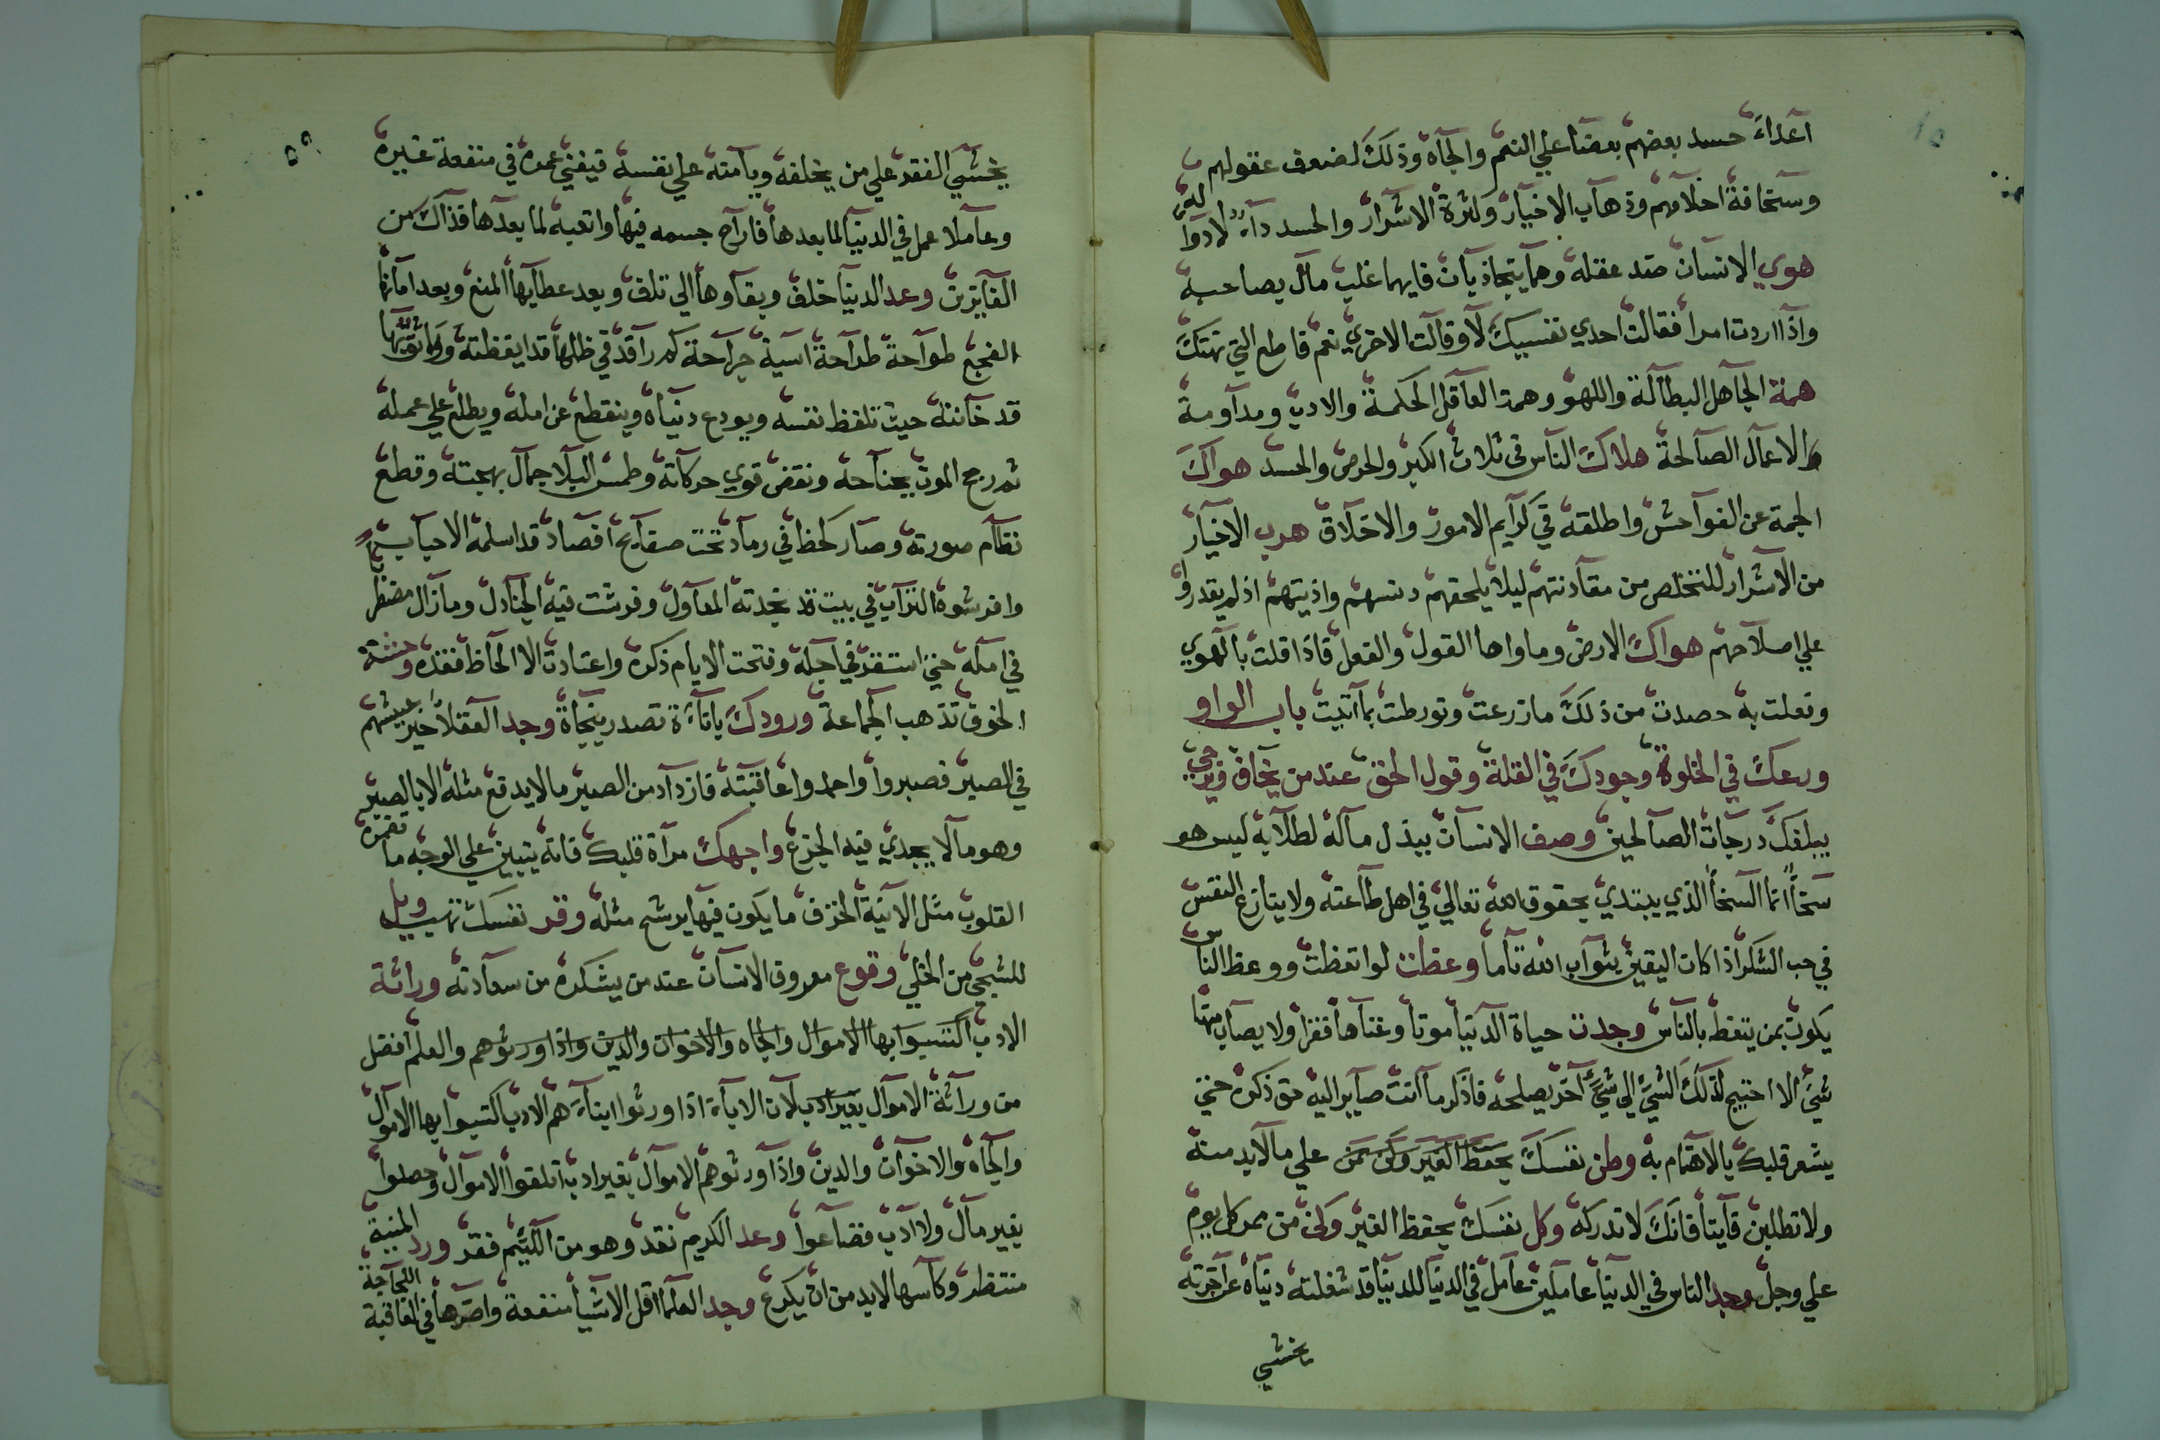 اعداء حسد بعضهم بعضا علي النعم والجاه وذلك لضعف عقولهم
وسخافة احلامهم وذهاب الاخيار وكثرة الاشرار والحسد داء لا دوا له
هوي الانسان ضد عقله وهما يتجاذبان فايهما غلب مال بصاحبه
واذا اردت امرا فقالت احدي نفسيك لا وقالت الاخري نعم فاطع التي نهتك
همة الجاهل البطالة واللهو وهمة العاقل الحكمة والادب ومداومة
الاعمال الصالحة هلاك الناس في ثلاث الكبر والحرص والحسد هواك
الجمه عن الفواحش واطلقه في كرايم الامور والاخلاق هرب الاخيار
من الاشرار للتخلص من مقادنتهم ليلا يلحقهم دنسهم واذيتهم اذ لم يقدروا
علي اصلاحهم هواك الارض وماواها القول والفعل فاذا قلت بالهوي
وفعلت به حصدت من ذلك ما زرعت وتورطت بما اتيت باب الواو
ورعك في الخلوة وجودك في القلة وقول الحق عند من يخاف ويرجي
يبلغك درجات الصالحين وصف الانسان ببذل ماله لطلابه ليس هو
سخا انما السخا الذي يبتدي بحقوق الله تعالي في اهل طاعته ولا ينازع النفس
في حب الشكر اذا كان اليقين بثواب الله تاما وعظت لو اتعظت ووعظ الناس
يكون بمن يتعظ بالناس وجدت حياة الدنيا موتا وغناها فقرا ولا يصاب منها
شئ الا احتيج لذلك الشئ الي شئ آخر يصلحه فاذكر ما انت صاير اليه حق ذكره حتي
يشعر قلبك بالاهتمام به وطن نفسك بحفظ الغير وكن ممن علي ما لابد منه
ولا تطلبن فايتا فانك لا تدركه وكل نفسك بحفظ الغير وكن من ممر كل يوم
علي وجل وجد الناس في الدنيا عاملين عامل في الدنيا للدنيا قد شغلته دنياه عن آخرته
يخشي
٥٩
يخشي الفقد علي من يخلفه ويامنه علي نفسه فيفني عمره في منفعة غيره
وعاملا عمل في الدنيا لما بعدها فاراح جسمه فيها واتعبه لما بعدها فذاك من
الفايزين وعد الدنيا خلف وبقاوها الي تلف وبعد عطايها المنع وبعد امانها
الفجع طواحة طراحة آسية جراحة كم راقد في ظلها قد ايقظته وواثق بها
قد خانته حيث تلفظ نفسه ويودع دنياه وينقطع عن امله ويطلع علي عمله
ثم رجح الموت بجناحه ونقض قوي حركاته وطمس البلا جمال بهجته وقطع
نظام صورته وصار كخط في رماد تحت صفايح افصاد قد اسلمه الاحباب
وافرشوه التراب في بيت قد نجدته المعاول وفرشت فيه الجنادل وما زال مضطر
في امله حتي استقر في اجله وفتحت الايام ذكره واعتادت الا الحاظ فقده وخشة
الخوف تذهب الجماعة ورودك باناءة تصدر بنجاة وجد العقلا خير عيشهم
في الصبر فصبروا واحمدوا عاقبته فازداد من الصبر ما لا يدفع مثله الا بالصبر
وهو ما لا يجدي فيه الجزع واجهك مرآة قلبك فانه يتبين علي الوجه ما تضمره
القلوب مثل الانية الخزف ما يكون فيها يرشح مثله وقر نفسك تهيب ويل
للشجي من الخلي وقوع معروف الانسان عند من يشكره من سعادته وراثة
الادب اكتسبوا بها الاموال والجاه والاخوان والدين واذا ورثوهم والعلم افضل
من وراثة الاموال بغير ادب لان الاباء اذا ورثوا ابناءهم الادب اكتسبوا بها الاموال
والجاه والاخوان والدين واذا ورثوهم الاموال بغير ادب اتلفوا الاموال وحصلوا
بغير مال ولا ادب فضاعوا وعد الكريم نقد وهو من اللئيم فقر ورد المنية
منتظر وكاسها لابد من ان يكرع وجد العلما اقل الاشيا منفعة واضرها في العاقبة اللجاجة